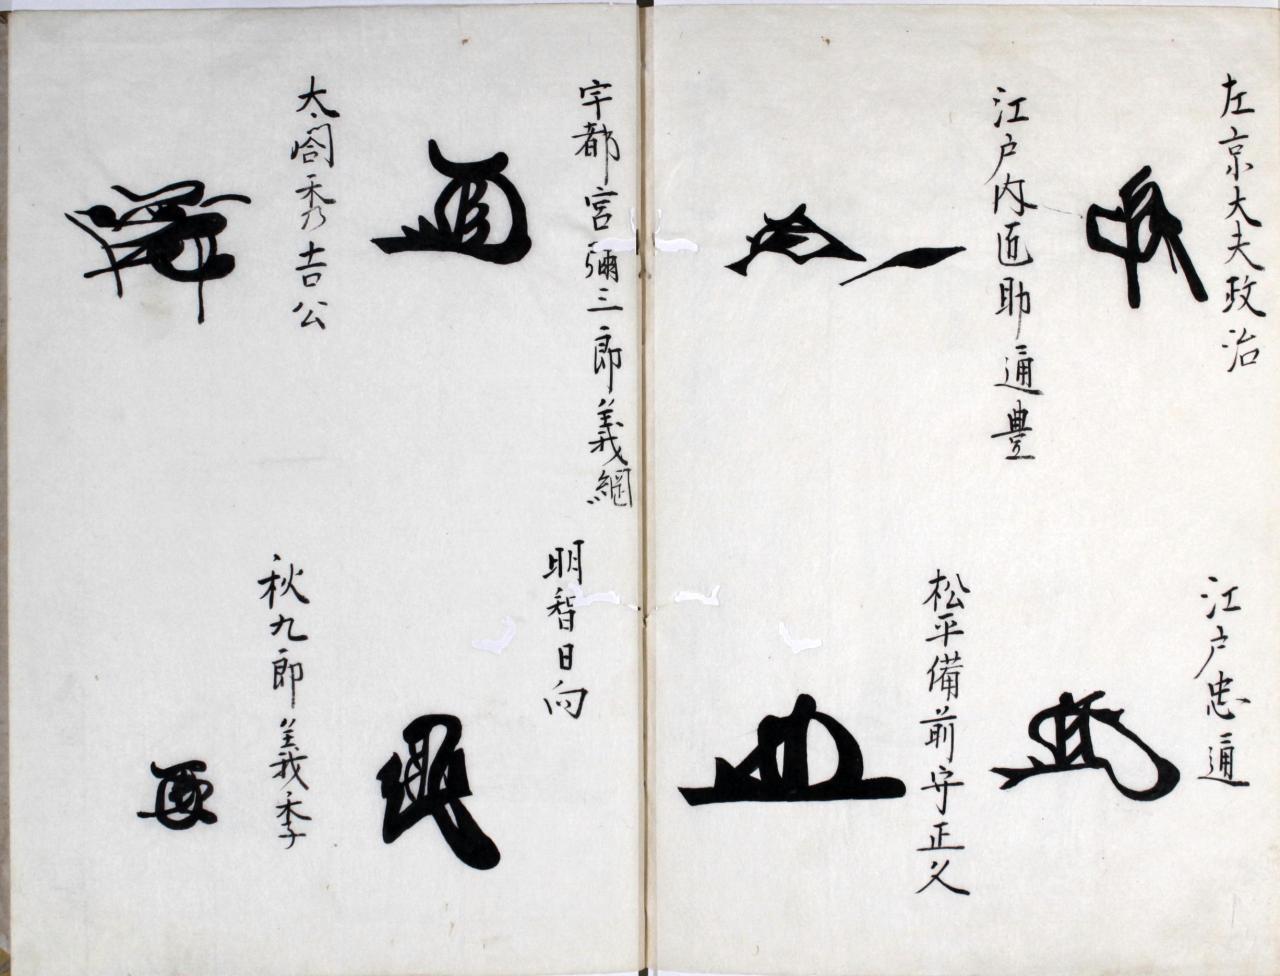 左京大夫政治
江戸忠通
江戸内匠助通豊
松平備前守正久
宇都宮彌三郎義綱
明智日向
太閤秀吉公
秋九郎義季